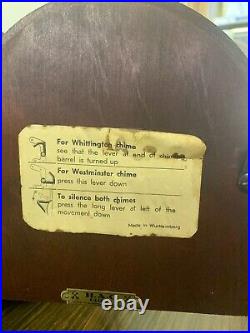 For Whittington chime
see that the lever at end of chiming
barrel is turned up
For Westminster chime
press this lever down
To silence both chimes
press the long lever at left of the
movement down
Made in Wurttemberg